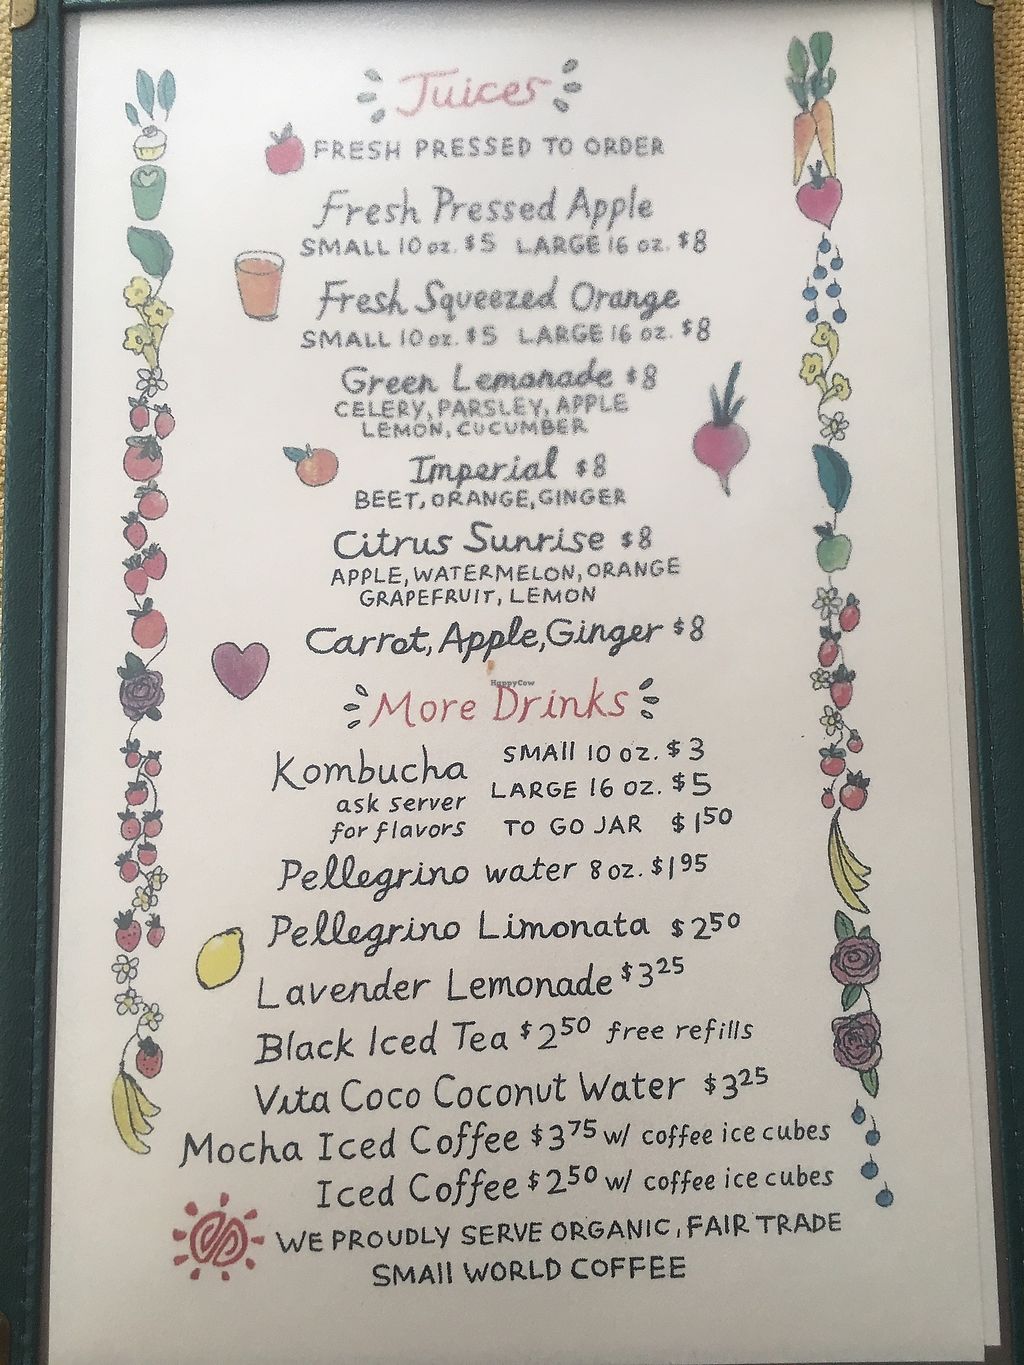 Juices
FRESH PRESSED TO ORDER
Fresh Pressed Apple
SMALL 10 oz. $5 LARGE 16 oz. $8
Fresh Squeezed Orange
SMALL 10 oz. $5 LARGE 16 oz. $8
Green Lemonade $8
CELERY, PARSLEY, APPLE
LEMON, CUCUMBER
Imperial $8
BEET, ORANGE, GINGER
Citrus Sunrise $8
APPLE, WATERMELON, ORANGE
GRAPEFRUIT, LEMON
Carrot, Apple, Ginger $8
HappyCow
More Drinks
Kombucha SMAll 10 oz. $3
ask server LARGE 16 oz. $5
for flavors TO GO JAR $150
Pellegrino water 8 oz. $195
Pellegrino Limonata $250
Lavender Lemonade $325
Black Iced Tea $250 free refills
Vita Coco Coconut Water $325
Mocha Iced Coffee $375 w/ coffee ice cubes
Iced Coffee $250 w/ coffee ice cubes
WE PROUDLY SERVE ORGANIC, FAIR TRADE
SMAll WORLD COFFEE